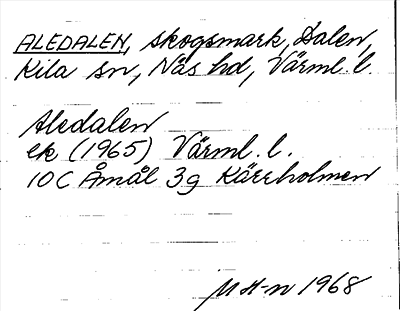 ALEDALEN, skogsmark, Dalen,
Kila sn, Näs hd, Värml. l.
Aledalen
ek (1965) Värml. l.
10C Åmål 3g Kärrholmen
M H-n 1968